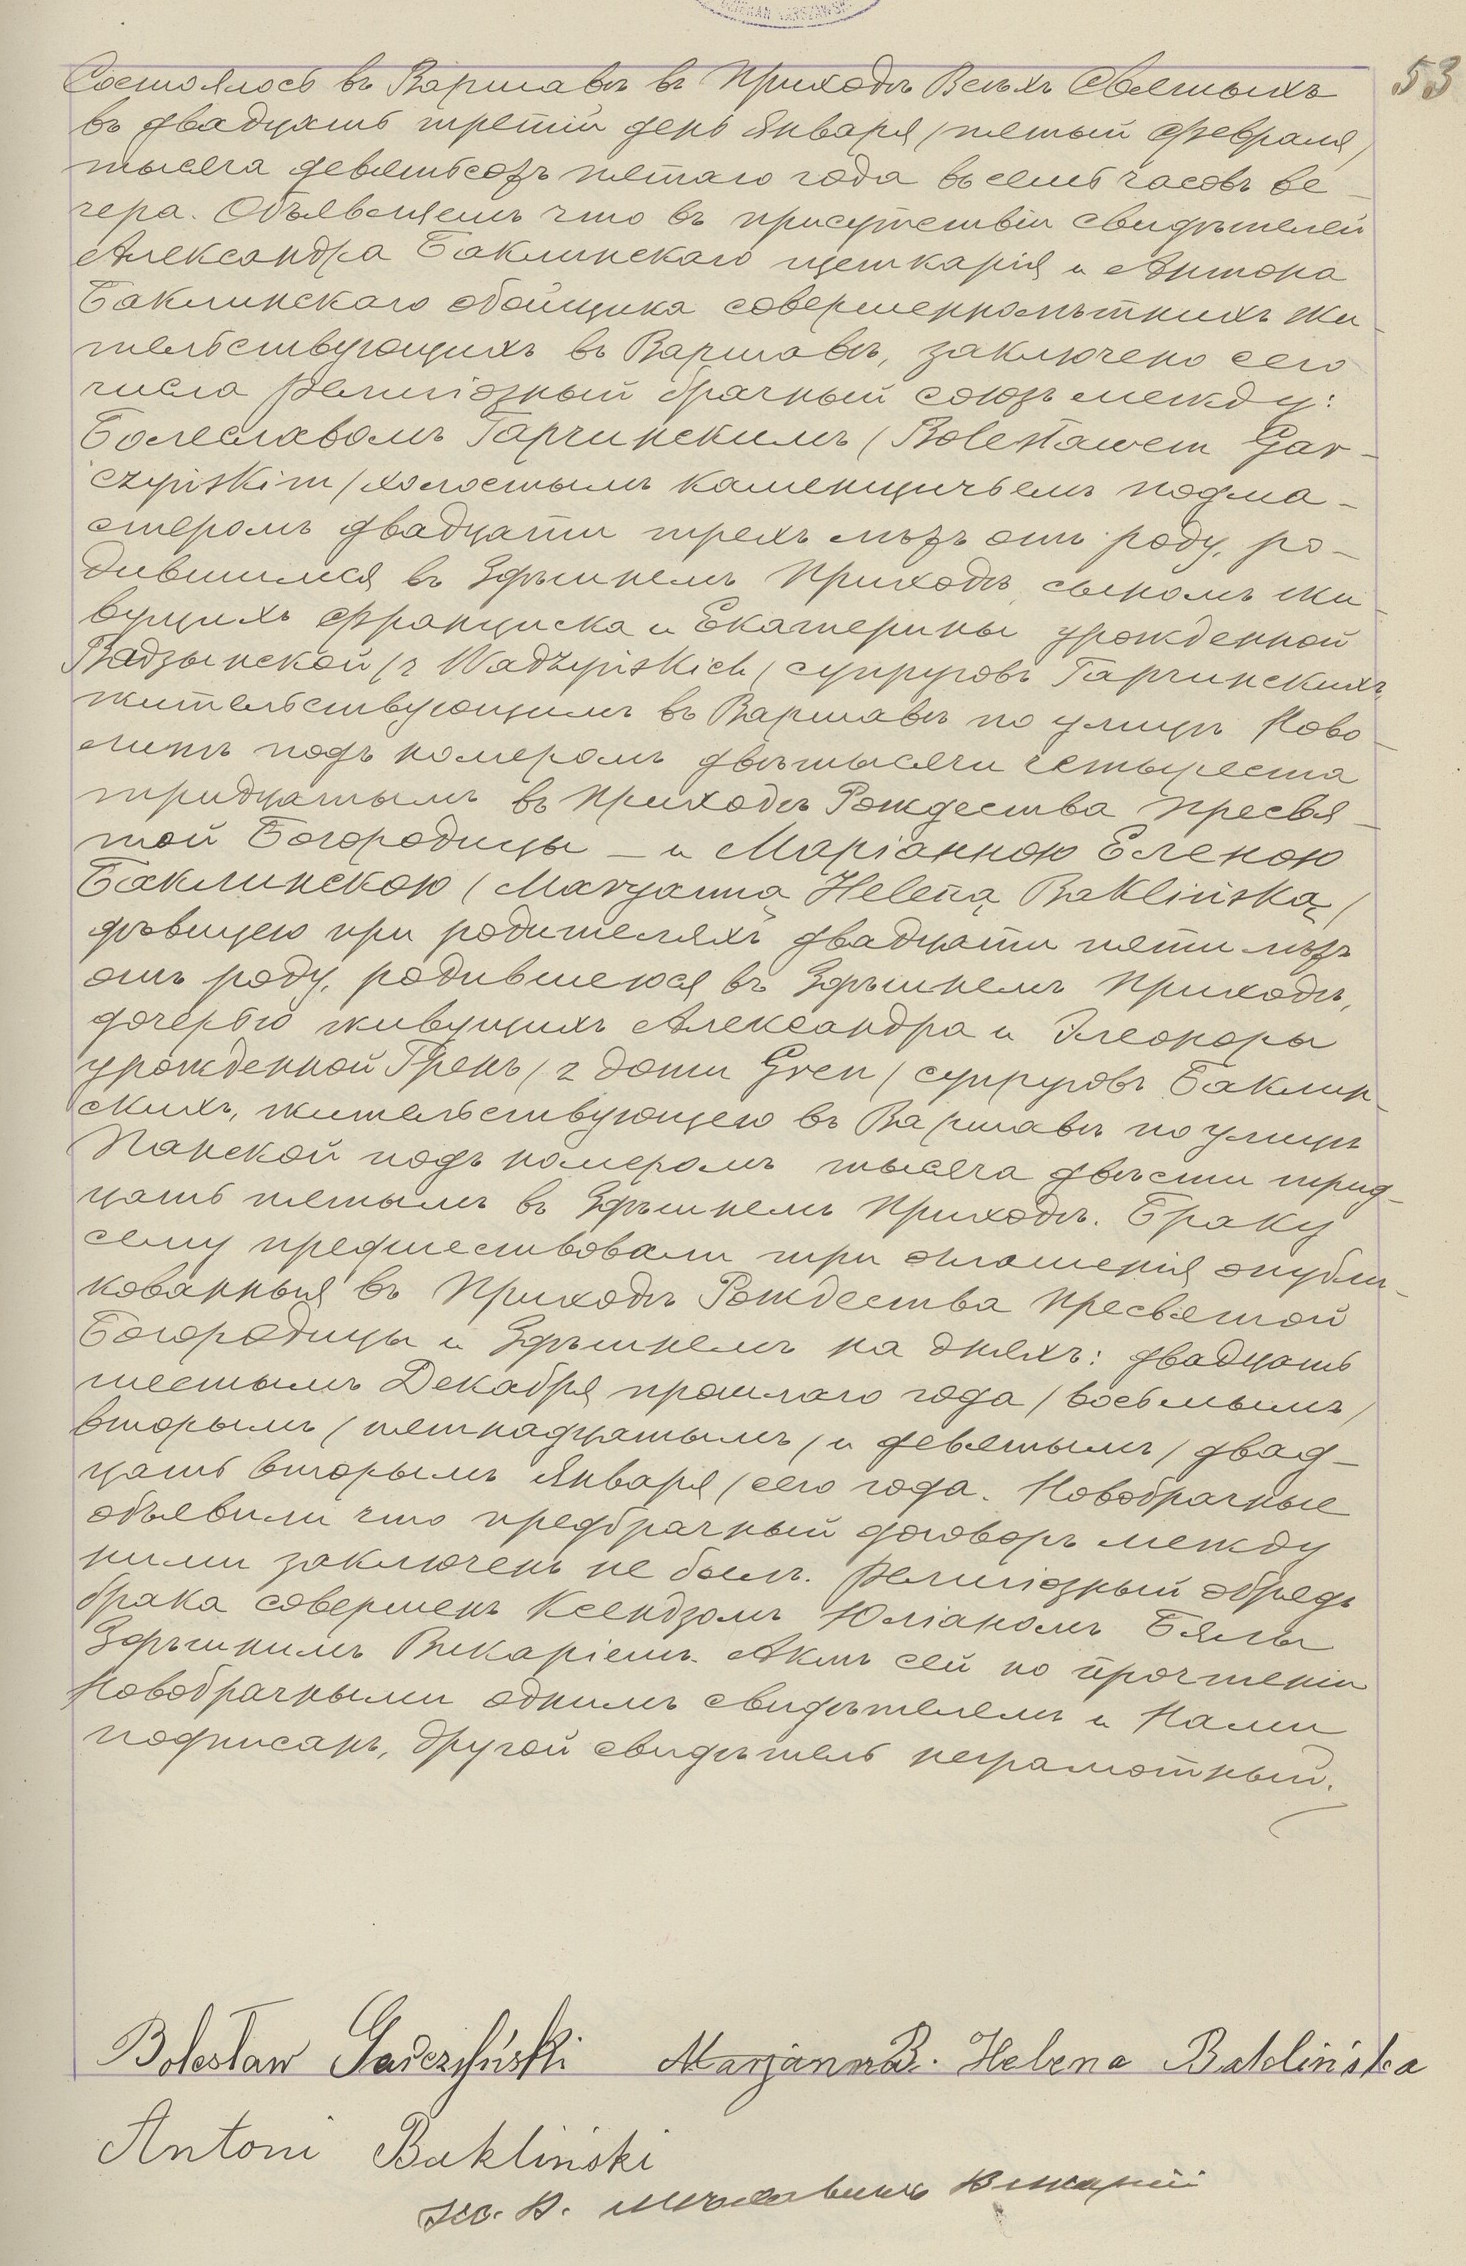 53
Состоялось въ Варшавѣ въ Приходѣ Всѣхъ Святыхъ
въ двадцать третій день Января /пятый Февраля/
тысяча девятьсотъ пятаго года въ семь часовъ ве-
чера. Объявляемъ что въ присутствіи свидѣтелей
Александра Баклинскаго щеткарія и Антона
Баклинскаго обойщика совершеннолѣтнихъ жи-
тельствующихъ въ Варшавѣ, заключено сего
числа религіозный брачный союзъ между:
Болеславомъ Гарчинскимъ /Bolesławem Gar-
czyńskim/ холостымъ каменщичьемъ подма-
стеромъ двадцати трехъ лѣтъ отъ роду, ро-
дившимся въ Здѣшнемъ Приходѣ, сыномъ жи-
вущихъ Франциска и Екатерины урожденной
Вадзынской /z Wadzyńskich/ супруговъ Гарчинскихъ,
жительствующимъ въ Варшавѣ по улицѣ Ново-
липѣ подъ номеромъ двѣтысячи четыреста
тридцатымъ въ Приходѣ Рождества Пресвя-
той Богородицы — и Маріанною Еленою
Баклинскою /Maryanną Heleną Baklińską/
дѣвицею при родителяхъ двадцати пяти лѣтъ
отъ роду, родившеюся въ Здѣшнемъ Приходѣ,
дочерью живущихъ Александра и Элеоноры
урожденной Гренъ /z domu Gren/ супруговъ Баклин-
скихъ, жительствующею въ Варшавѣ по улицѣ
Панской подъ номеромъ тысяча двѣсти трид-
цать пятымъ въ Здѣшнемъ Приходѣ. Браку
сему предшествовали три оглашенія опубли-
кованныя въ Приходѣ Рождества Пресвятой
Богородицы и Здѣшнемъ на дняхъ: двадцать
шестымъ Декабря прошлаго года /восьмымъ/
вторымъ /пятнадцатымъ/ и девятымъ /двад-
цать вторымъ Января/ сего года. Новобрачные
объявили что предбрачный договоръ между
ними заключенъ не былъ. Религіозный обрядъ
брака совершенъ Ксендзомъ Юліаномъ Бялы
Здѣшнимъ Викаріемъ. Актъ сей по прочтеніи
Новобрачными однимъ свидѣтелемъ и Нами
подписанъ, другой свидѣтель неграмотный.
Bolesław Garczyński Marjanna B. Helena Baklińska
Antoni Bakliński
Кс. Викарій